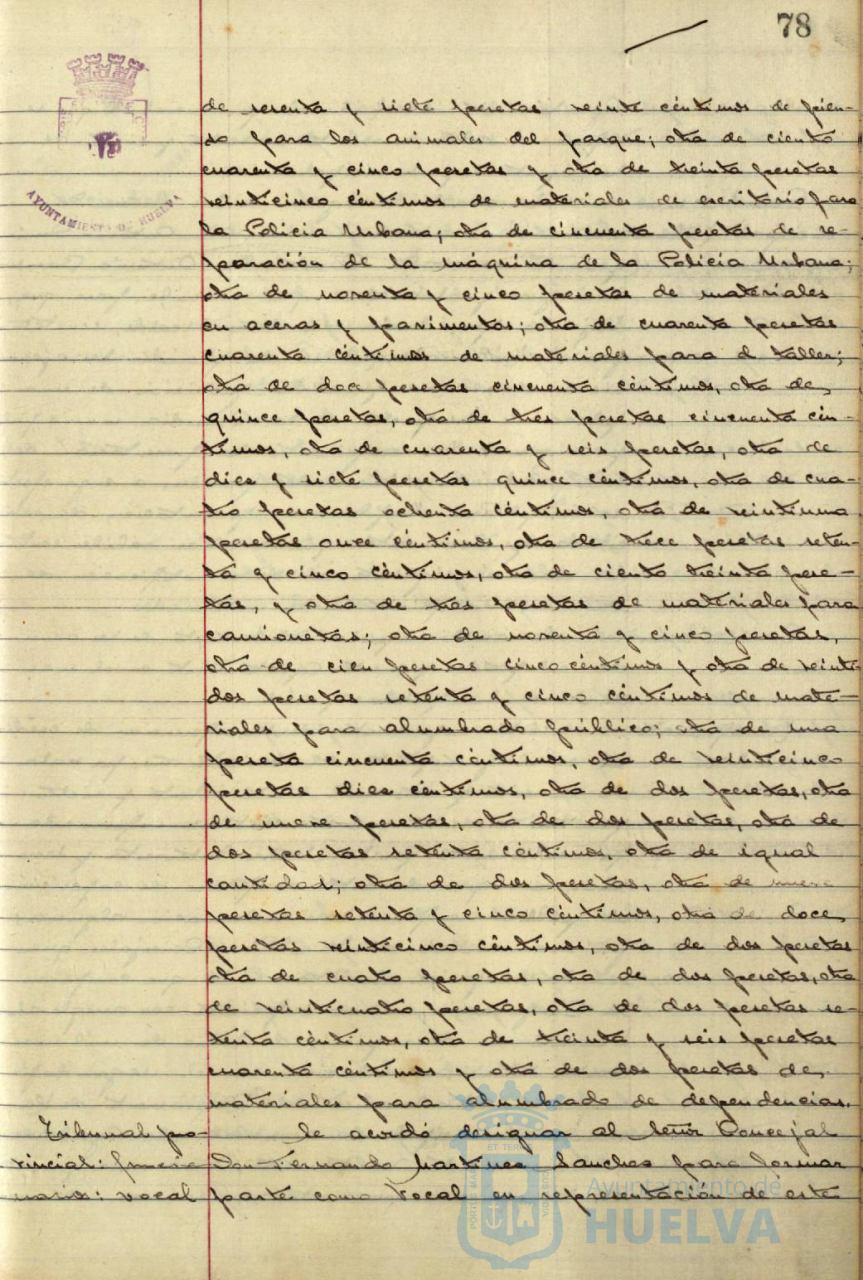 78
AYUNTAMIENTO DE HUELVA
de sesenta y siete pesetas veinte céntimos de pien-
so para los animales del parque; otra de ciento
cuarenta y cinco pesetas y otra de treinta pesetas
veinticinco céntimos de materiales de escritorio para
la Policia Urbana; otra de cincuenta pesetas de re-
paración de la máquina de la Policia Urbana;
otra de noventa y cinco pesetas de materiales
en aceras y pavimentos; otra de cuarenta pesetas
cuarenta céntimos de materiales para el taller;
otra de doce pesetas cincuenta céntimos, otra de
quince pesetas, otra de tres pesetas cincuenta cén-
timos, otra de cuarenta y seis pesetas, otra de
diez y siete pesetas quince céntimos, otra de cua-
tro pesetas ochenta céntimos, otra de veintiuna
pesetas once céntimos, otra de trece pesetas seten-
ta y cinco céntimos, otra de ciento treinta pese-
tas, y otra de tres pesetas de materiales para
camionetas; otra de noventa y cinco pesetas,
otra de cien pesetas cinco céntimos y otra de veinti-
dos pesetas setenta y cinco céntimos de mate-
riales para alumbrado público; otra de una
peseta cincuenta céntimos, otra de veinticinco
pesetas diez céntimos, otra de dos pesetas, otra
de nueve pesetas, otra de dos pesetas, otra de
dos pesetas setenta céntimos, otra de igual
cantidad; otra de dos pesetas, otra de nueve
pesetas setenta y cinco céntimos, otra de doce
pesetas veinticinco céntimos, otra de dos pesetas
otra de cuatro pesetas, otra de dos pesetas, otra
de veinticuatro pesetas, otra de dos pesetas se-
tenta céntimos, otra de treinta y seis pesetas
cuarenta céntimos y otra de dos pesetas de
materiales para alumbrado de dependencias.
Tribunal pro- Se acordó designar al Señor Concejal
vincial: Don Fernando Martinez Sanchez para formar
vocal parte como Vocal en representación de este
Ayuntamiento de
HUELVA